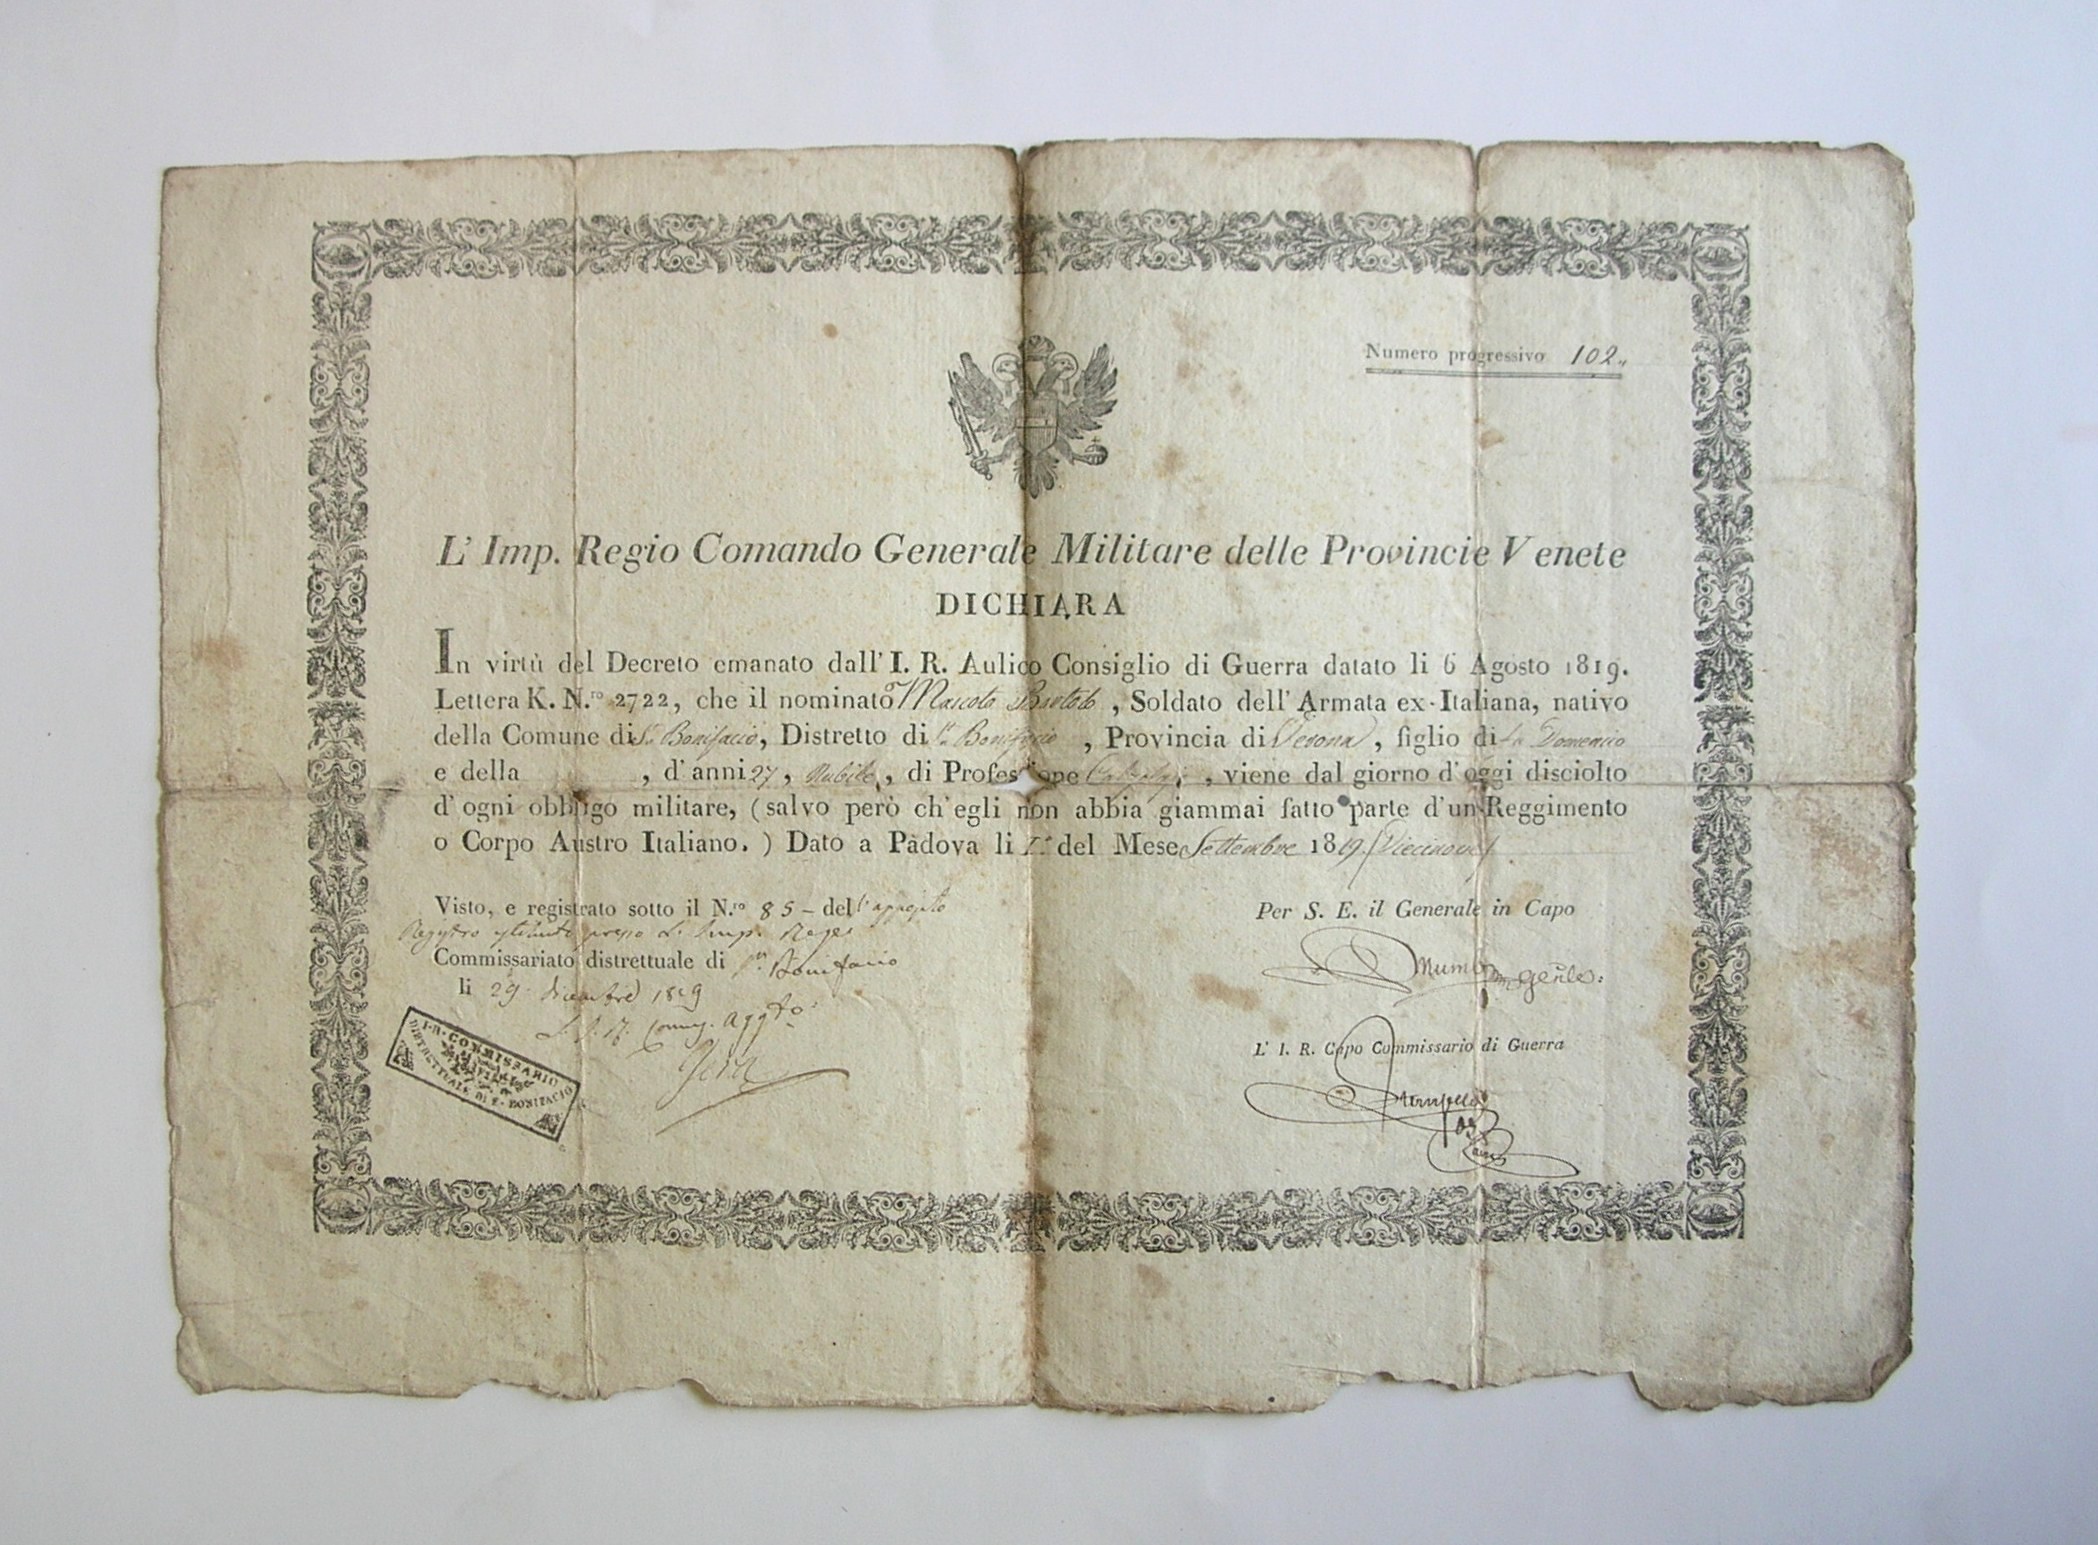 Numero progressivo 102
L' Imp. Regio Comando Generale Militare delle Provincie Venete
DICHIARA
In virtù del Decreto emanato dall' I. R. Aulico Consiglio di Guerra datato li 6 Agosto 1819.
Lettera K. N.ro 2722, che il nominato Bortolo, Soldato dell' Armata ex-Italiana, nativo
della Comune di Sn. Bonifacio, Distretto di Sn. Bonifacio, Provincia di Verona, figlio di Domenico
e della , d' anni 27, Nubile, di Professione , viene dal giorno d' oggi disciolto
d' ogni obbligo militare, (salvo però ch' egli non abbia giammai fatto parte d' un Reggimento
o Corpo Austro Italiano.) Dato a Pàdova li del Mese Settembre 1819
Visto, e registrato sotto il N.ro 85 - dell' apposito
Registro presso L' Imp. Regio
Commissariato distrettuale di Sn. Bonifacio
li 29 dicembre 1819
I. R. COMMISSARIATO
DISTRETTUALE DI S. BONIFACIO
Per S. E. il Generale in Capo
L' I. R. Capo Commissario di Guerra